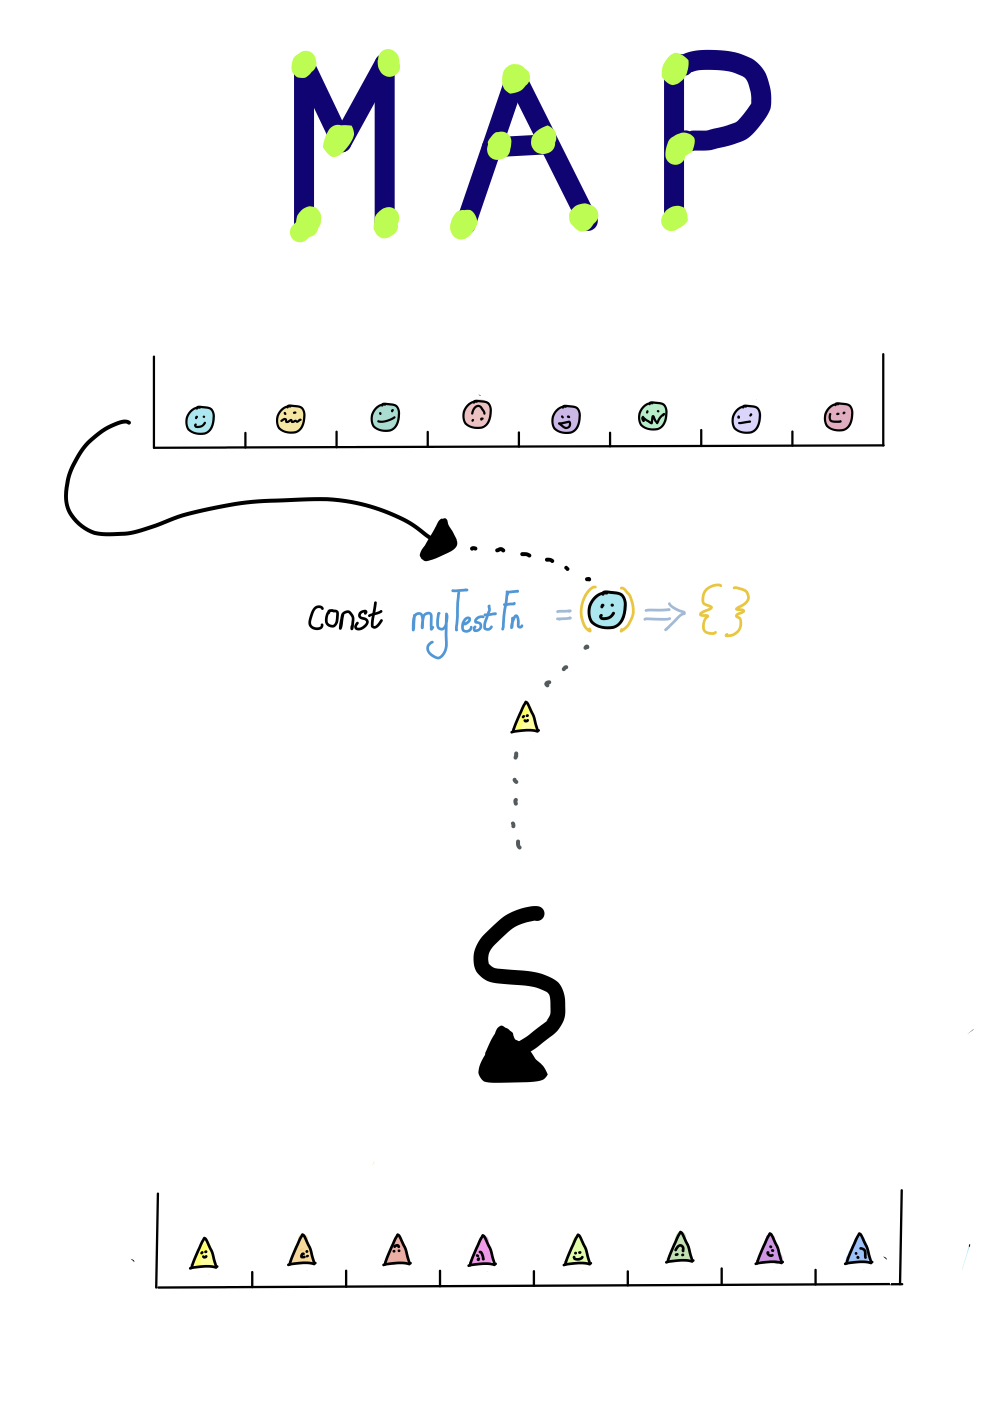 MAP
const myTestFn = ( ) => { }